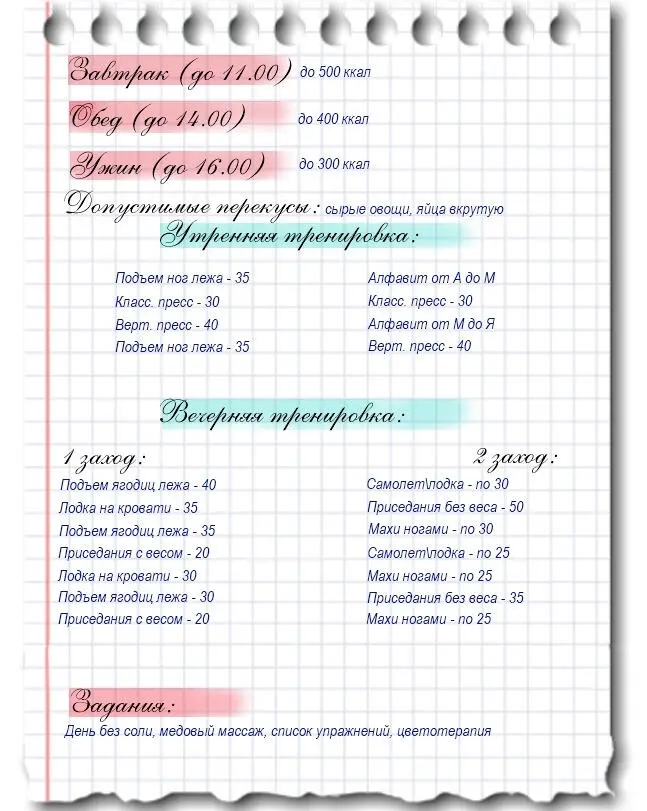 Завтрак (до 11.00) до 500 ккал
Обед (до 14.00) до 400 ккал
Ужин (до 16.00) до 300 ккал
Допустимые перекусы: сырые овощи, яйца вкрутую
Утренняя тренировка:
Подъем ног лежа - 35
Класс. пресс - 30
Верт. пресс - 40
Подъем ног лежа - 35
Алфавит от А до М
Класс. пресс - 30
Алфавит от М до Я
Верт. пресс - 40
Вечерняя тренировка:
1 заход:
Подъем ягодиц лежа - 40
Лодка на кровати - 35
Подъем ягодиц лежа - 35
Приседания с весом - 20
Лодка на кровати - 30
Подъем ягодиц лежа - 30
Приседания с весом - 20
2 заход:
Самолет\лодка - по 30
Приседания без веса - 50
Махи ногами - по 30
Самолет\лодка - по 25
Махи ногами - по 25
Приседания без веса - 35
Махи ногами - по 25
Задания:
День без соли, медовый массаж, список упражнений, цветотерапия